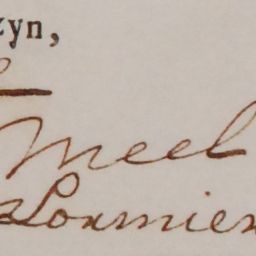 zyn,
Meel
Lormier